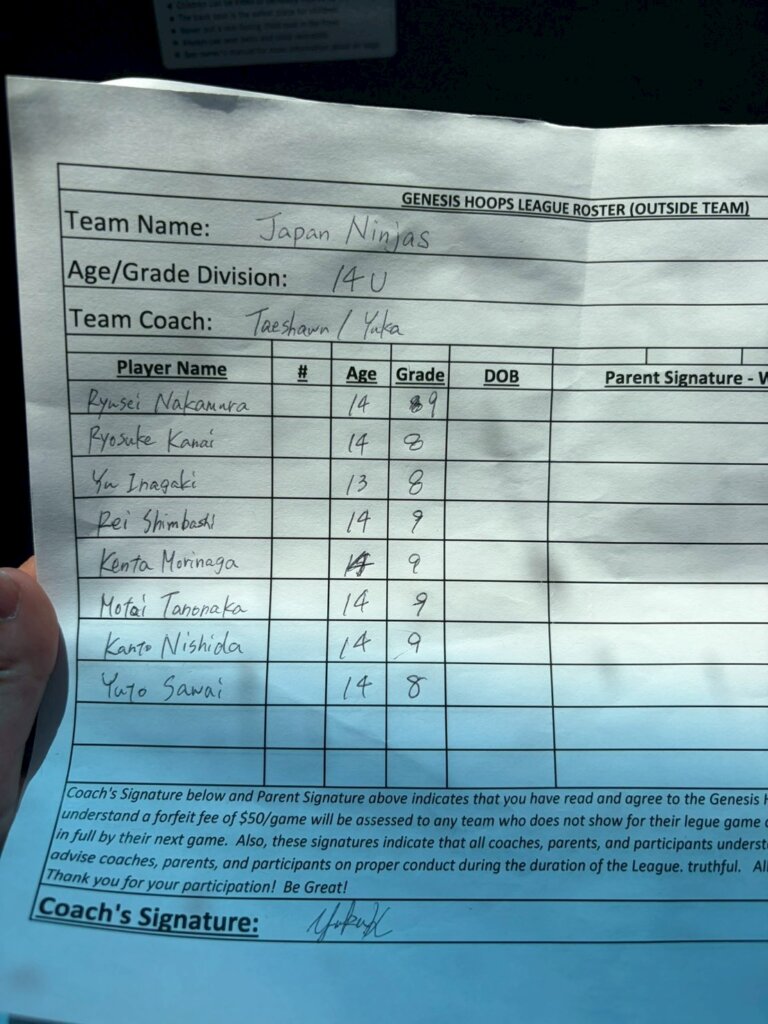 GENESIS HOOPS LEAGUE ROSTER (OUTSIDE TEAM)
Team Name: Japan Ninjas
Age/Grade Division: 14U
Team Coach: Taeshawn / Yuka
Player Name # Age Grade DOB Parent Signature - W
Ryusei Nakamura 14 9
Ryosuke Kanai 14 8
Yu Inagaki 13 8
Rei Shimbashi 14 9
Kenta Morinaga 14 9
Motoi Tanonaka 14 9
Kanto Nishida 14 9
Yuto Sawai 14 8
Coach's Signature below and Parent Signature above indicates that you have read and agree to the Genesis H
understand a forfeit fee of $50/game will be assessed to any team who does not show for their legue game
in full by their next game. Also, these signatures indicate that all coaches, parents, and participants underst
advise coaches, parents, and participants on proper conduct during the duration of the League. truthful. All
Thank you for your participation! Be Great!
Coach's Signature: